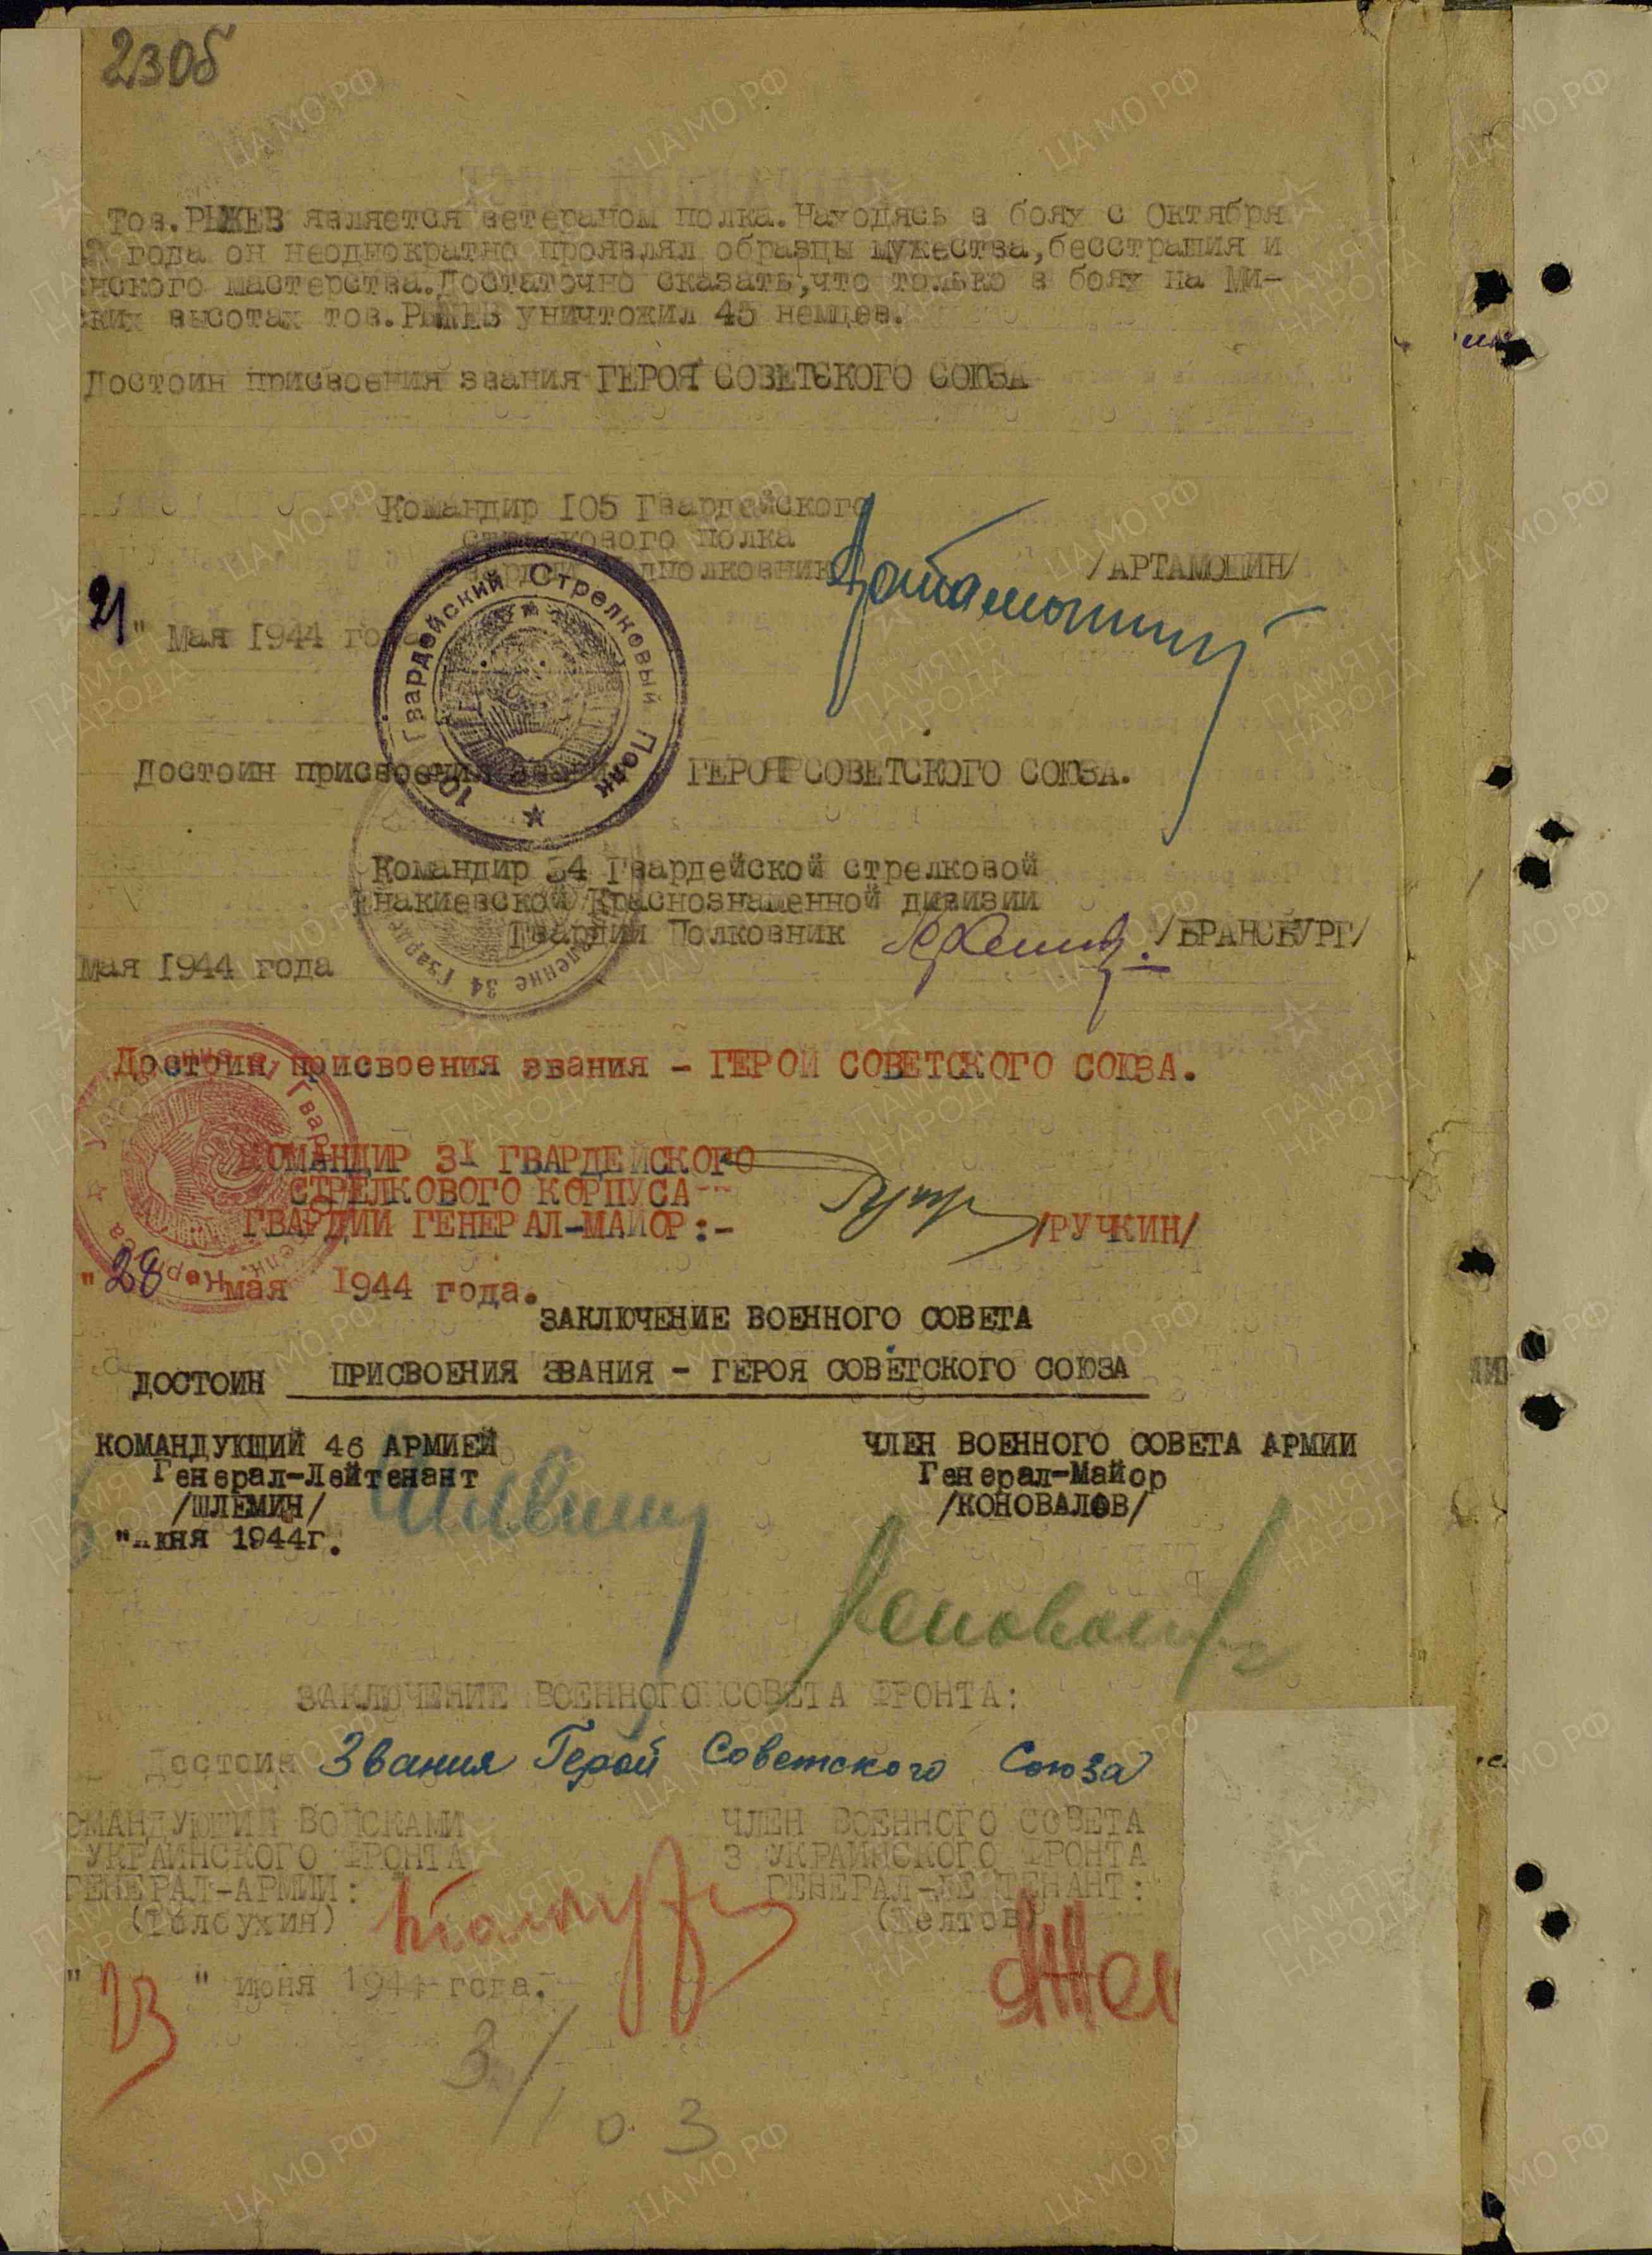 230б
Тов.РЫЖЕВ является ветераном полка.Находясь в боях с Октября
года он неоднократно проявлял образцы мужества,бесстрашия и
нского мастерства.Достаточно сказать,что только в боях на Ми-
ких высотах тов.РЫЖЕВ уничтожил 45 немцев.
Достоин присвоения звания ГЕРОЯ СОВЕТСКОГО СОЮЗА
Командир 105 Гвардейского
стрелкового полка
гвардии подполковник
/АРТАМОШИН/
21 " Мая 1944 года
Гвардейский Стрелковый Полк
Достоин присвоения звания ГЕРОЯ СОВЕТСКОГО СОЮЗА.
Командир 34 Гвардейской стрелковой
Енакиевской Краснознаменной дивизии
Гвардии Полковник /БРАНСБУРГ/
мая 1944 года
Достоин присвоения звания - ГЕРОЙ СОВЕТСКОГО СОЮЗА.
КОМАНДИР 31 ГВАРДЕЙСКОГО
СТРЕЛКОВОГО КОРПУСА
ГВАРДИИ ГЕНЕРАЛ-МАЙОР:- /РУЧКИН/
"28" мая 1944 года.
ЗАКЛЮЧЕНИЕ ВОЕННОГО СОВЕТА
ДОСТОИН ПРИСВОЕНИЯ ЗВАНИЯ - ГЕРОЯ СОВЕТСКОГО СОЮЗА
КОМАНДУЮЩИЙ 46 АРМИЕЙ
Генерал-Лейтенант
/ШЛЕМИН/
"июня 1944г.
ЧЛЕН ВОЕННОГО СОВЕТА АРМИИ
Генерал-Майор
/КОНОВАЛОВ/
ЗАКЛЮЧЕНИЕ ВОЕННОГО СОВЕТА ФРОНТА:
Достоин Звания Герой Советского Союза
ОМАНДУЮЩИЙ ВОЙСКАМИ
УКРАИНСКОГО ФРОНТА
ГЕНЕРАЛ-АРМИИ:
(Толбухин)
ЧЛЕН ВОЕННОГО СОВЕТА
3 УКРАИНСКОГО ФРОНТА
ГЕНЕРАЛ-ЛЕЙТЕНАНТ:
(Желтов)
" 23 " июня 1944 года.